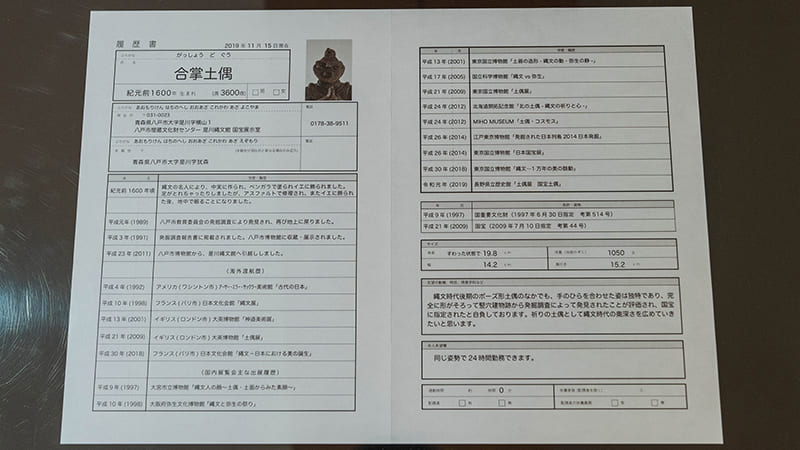 履歴書
2019年11月15日現在
がっしょう どぐう
合掌土偶
紀元前1600年 生まれ (満 3600歳) □男 □女
あおもりけん はちのへし おおあざ これかわ あざ よこやま
〒031-0023
青森県八戸市大字是川字横山1
八戸市埋蔵文化財センター 是川縄文館 国宝展示室
電話
0178-38-9511
あおもりけん はちのへし おおあざ これかわ あざ
青森県八戸市大字是川字
電話
年 学歴・職歴
紀元前1600年頃 縄文の名人により、中実に作られ、ベンガラで塗られイエに飾られました。
足がとれちゃったりしましたが、アスファルトで修理され、またイエに飾られた後、地中で眠ることになりました。
平成元年(1989) 八戸市教育委員会の発掘調査により発見され、再び地上に戻りました。
平成3年(1991) 発掘調査報告書に掲載されました。八戸市博物館に収蔵・展示されました。
平成23年(2011) 八戸市博物館から、是川縄文館へ引越ししました。
(海外渡航歴)
平成4年(1992) アメリカ(ワシントンD.C)アーサー・ミラー・サックラー美術館「古代の日本」
平成10年(1998) フランス(パリ市)日本文化会館「縄文展」
平成13年(2001) イギリス(ロンドン市)大英博物館「神道美術展」
平成21年(2009) イギリス(ロンドン市)大英博物館「土偶展」
平成30年(2018) フランス(パリ市)日本文化会館「縄文-日本における美の誕生」
(国内展覧会主な出展履歴)
平成9年(1997) 大宮市立博物館「縄文人の顔~土偶・土面からみた素顔~」
平成10年(1998) 大阪府弥生文化博物館「縄文と弥生の祭り」
年 学歴・職歴
平成13年(2001) 東京国立博物館「土器の造形-縄文の動・弥生の静-」
平成17年(2005) 国立科学博物館「縄文vs弥生」
平成21年(2009) 東京国立博物館「土偶展」
平成24年(2012) 北海道開拓記念館「北の土偶-縄文の祈りと心-」
平成24年(2012) MIHO MUSEUM「土偶・コスモス」
平成26年(2014) 江戸東京博物館「発掘された日本列島2014日本発掘」
平成26年(2014) 東京国立博物館「日本国宝展」
平成30年(2018) 東京国立博物館「縄文-1万年の美の鼓動」
令和元年(2019) 長野県立歴史館「土偶展 国宝土偶」
年 免許・資格
平成9年(1997) 国重要文化財(1997年6月30日指定 考第514号)
平成21年(2009) 国宝(2009年7月10日指定 考第44号)
サイズ
すわった状態で19.8 cm 1050 g
幅 14.2 cm 奥行き 15.2 cm
縄文時代後期のポーズ形土偶のなかでも、手のひらを合わせた姿は独特であり、完
全に形がそろって竪穴建物跡から発掘調査によって発見されたことが評価され、国宝
に指定されたと自負しております。祈りの土偶として縄文時代の奥深さを広めていき
たいと思います。
本人希望欄
同じ姿勢で24時間勤務できます。
通勤時間 約 時間 0 分
配偶者 □有 □無 配偶者の扶養義務 □有 □無